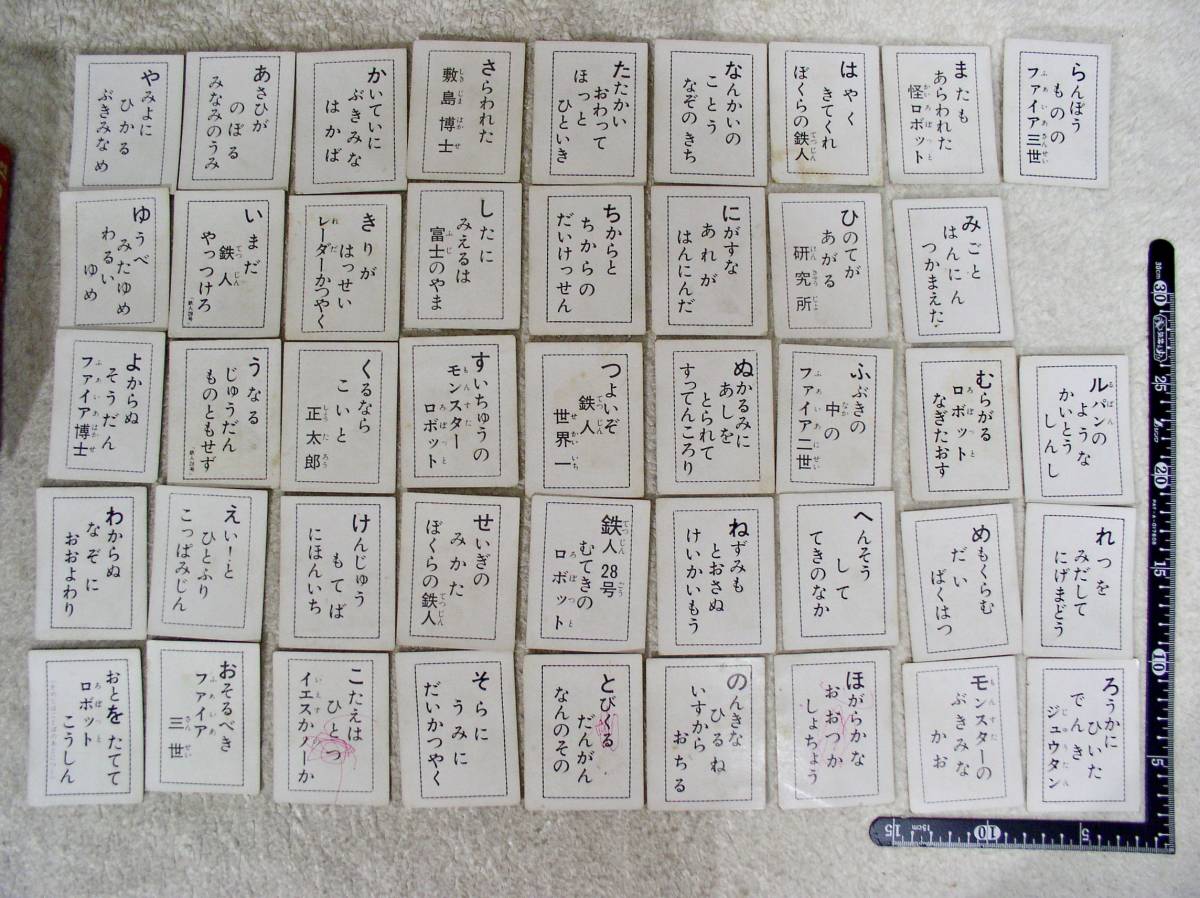 やみよに
ひかる
ぶきみなめ
あさひが
のぼる
みなみのうみ
かいていに
ぶきみな
はかば
さらわれた
敷島博士
たたかい
おわって
ほっと
ひといき
なんかいの
ことう
なぞのきち
はやく
きてくれ
ぼくらの鉄人
またも
あらわれた
怪ロボット
らんぼう
ものの
ファイア三世
ゆうべ
みたゆめ
わるい
ゆめ
いまだ
鉄人
やっつけろ
きりが
はっせい
レーダーかつやく
したに
みえるは
富士のやま
ちからと
ちからの
だいけっせん
にがすな
あれが
はんにんだ
ひのてが
あがる
研究所
みごと
はんにん
つかまえた
よからぬ
そうだん
ファイア博士
うなる
じゅうだん
ものともせず
くるなら
こいと
正太郎
すいちゅうの
モンスター
ロボット
つよいぞ
鉄人
世界一
ぬかるみに
あしを
とられて
すってんころり
ふぶきの
中の
ファイア二世
むらがる
ロボット
なぎたおす
ルパンの
ような
かいとう
しんし
わからぬ
なぞに
おおよわり
えい!と
ひとふり
こっぱみじん
けんじゅう
もてば
にほんいち
せいぎの
みかた
ぼくらの鉄人
鉄人28号
むてきの
ロボット
ねずみも
とおさぬ
けいかいもう
へんそう
して
てきのなか
めもくらむ
だい
ばくはつ
れつを
みだして
にげまどう
おとをたてて
ロボット
こうしん
おそるべき
ファイア
三世
こたえは
ひとつ
イエスかノーか
そらに
うみに
だいかつやく
とびくる
だんがん
なんのその
のんきな
ひるね
いすから
おちる
ほがらかな
おおつか
しょちょう
モンスターの
ぶきみな
かお
ろうかに
ひいた
でんき
ジュウタン
30
25
20
15
10
5
15
15cm
10
5